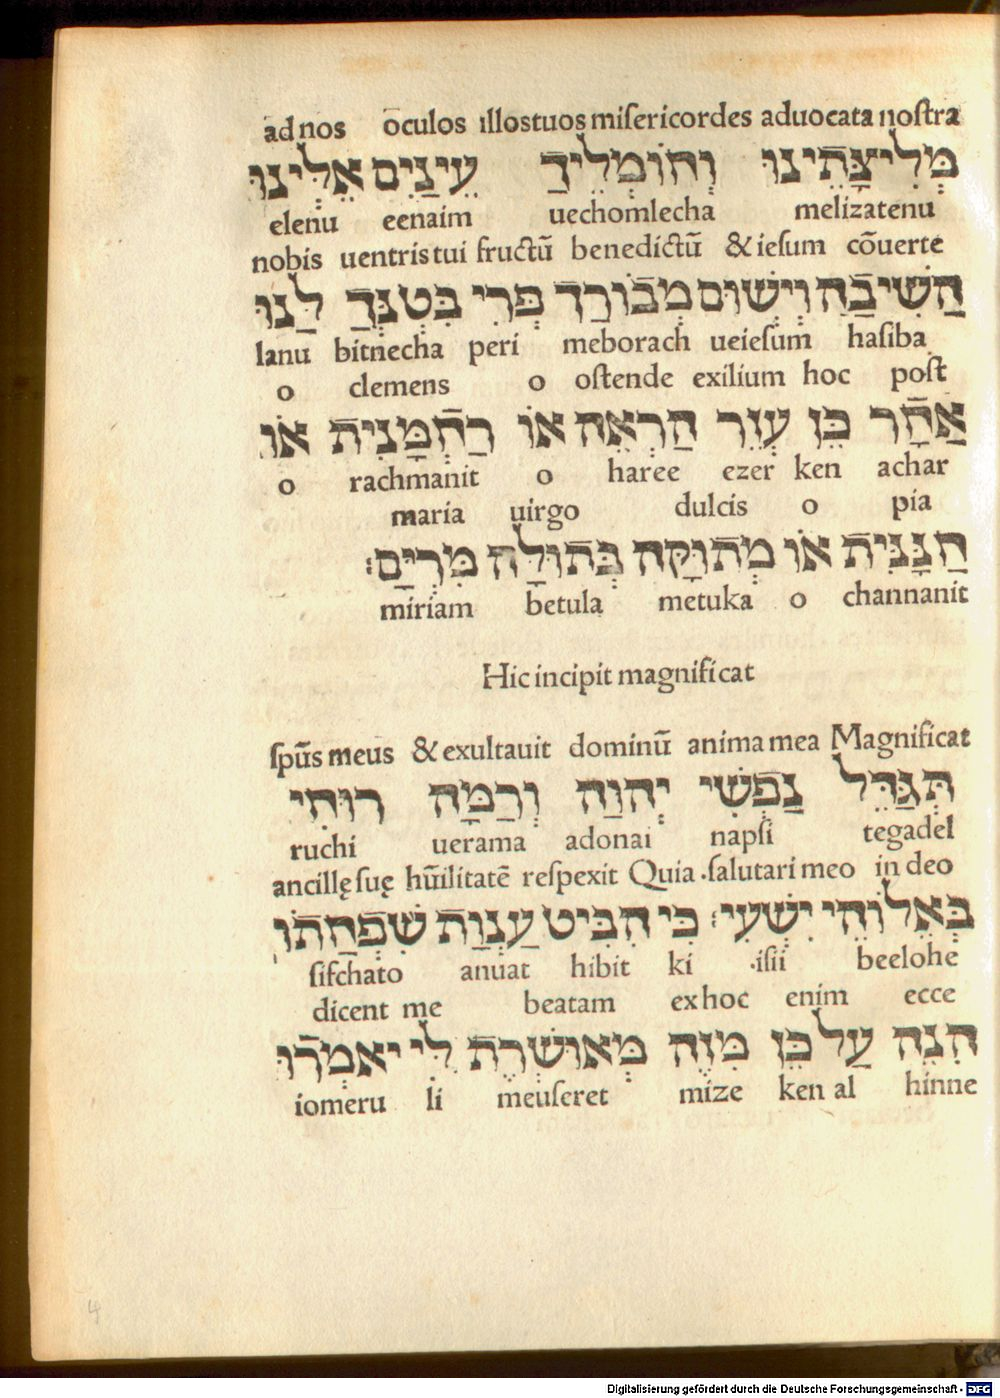 ad nos oculos illostuos miſericordes aduocata noſtra
מְּלִיצָּתֵינוּ וְחוֹמְלֵיךַ עֵינַיִם אֵלֵינוּ
elenu eenaim uechomlecha melizatenu
nobis uentris tui fructū benedictū & ieſum cōuerte
הַשִׁיבַה וְיֵשׁוּם מְבוֹרַךְ פְּרִי בִּטְנְּךַ לַנוּ
lanu bitnecha peri meborach ueieſum haſiba
o clemens o oſtende exilium hoc poſt
אַחָר כֵּן עֶזֶר הַרְאֵה אוֹ רַחְמָּנִית אוֹ
o rachmanit o haree ezer ken achar
maria uirgo dulcis o pia
חַנָּנִּית אוֹ מְתוּקָּה בְּתוּלָה מִּרְיָּם׃
miriam betula metuka o channanit
Hic incipit magnificat
ſpūs meus & exultauit dominū anima mea Magnificat
תְּגַּדֵּל נַפְשִׁי יְהוַה וְרַמָּה רוּחִי
ruchi uerama adonai napſi tegadel
ancillę ſuę hūilitatē reſpexit Quia .ſalutari meo in deo
בְּאֵלוֹהֵי יִשְׁעִי׃ כִּי הִבִּיט עַנְוַת שִׁפְחַתוֹ
ſifchato anuat hibit ki .iſii beelohe
dicent me beatam exhoc enim ecce
הִנֵּה עַל כֵּן מִּזֶה מְּאוּשֶּׁרֶת לִּי יאמְרוּ
iomeru li meuſeret mize ken al hinne
4
Digitalisierung gefördert durch die Deutsche Forschungsgemeinschaft - DFG